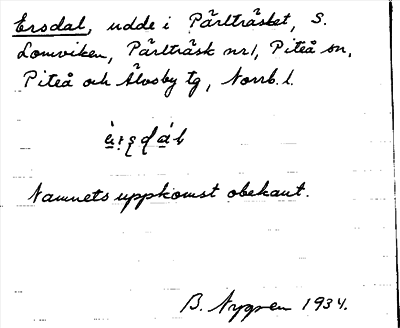 Ersdal, udde i Pärlträsket, S.
Lomviken, Pärlträsk nr 1, Piteå sn,
Piteå och Älvsby tg, Norrb. l.
Namnets uppkomst obekant.
B. Nygren 1934.